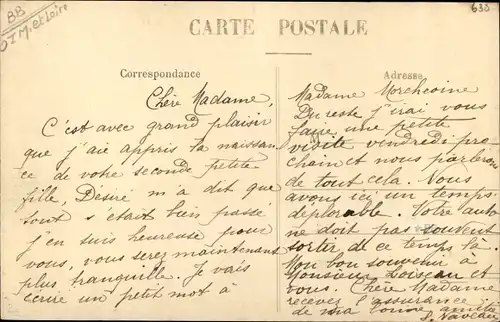 BB
M. et Loire
630
CARTE POSTALE
Correspondance
Chère Madame,
C'est avec grand plaisir
que j'aie appris la naissan
ce de votre seconde petite
fille, Désiré m'a dit que
tout s'était bien passé
j'en suis heureuse pour
vous, vous serez maintenant
plus tranquille. Je vais
écrire un petit mot à
Adresse
Madame
Du reste j'irai vous
faire une petite
visite vendredi pro-
chain et nous parlerons
de tout cela. Nous
avons ici un temps
déplorable. Votre auto
ne doit pas souvent
sortir de ce temps là.
Mon bon souvenir à
Monsieur Loiseau et
vous. Chère Madame
recevez l'assurance
de ma bonne amitié